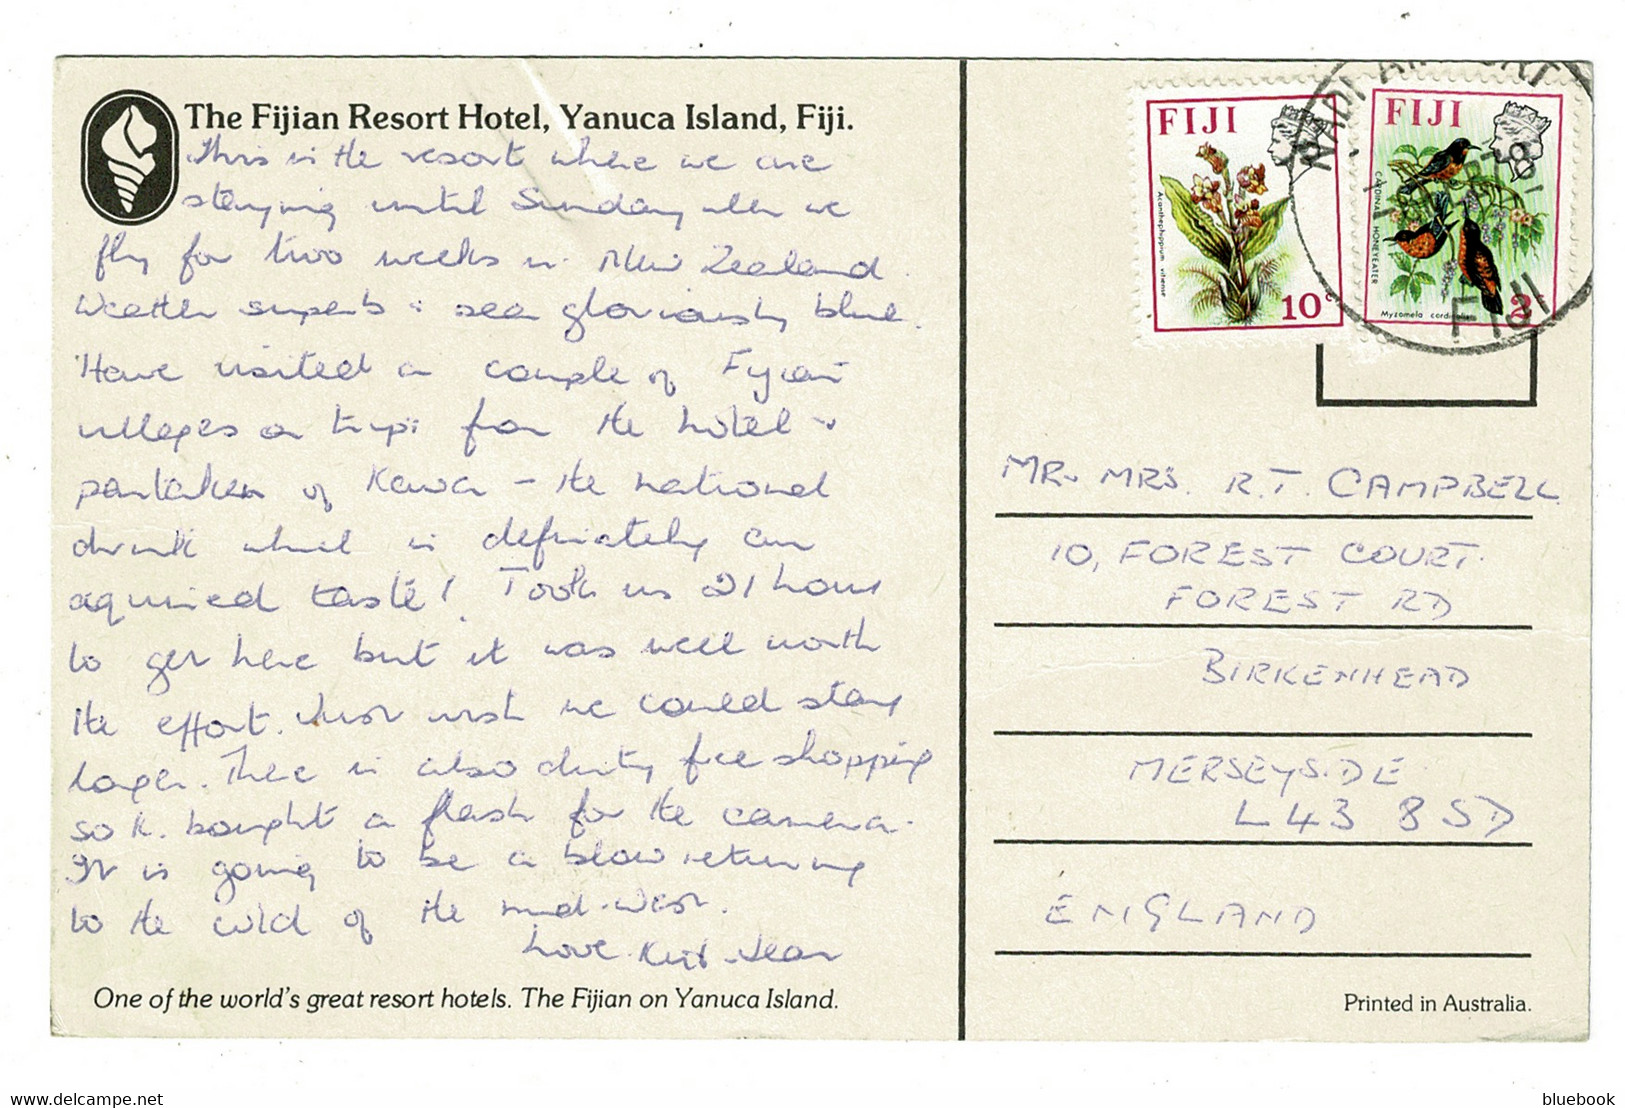 The Fijian Resort Hotel, Yanuca Island, Fiji.
This is the resort where we are
staying until Sunday when we
fly for two weeks in New Zealand.
Weather superb & sea gloriously blue.
Have visited a couple of Fijian
villages on trips from the hotel &
partaken of Kava - the national
drink which is definately an
aquired taste! Took us 21 hours
to get here but it was well worth
the effort. Just wish we could stay
longer. There is also duty free shopping
so K. bought a flash for the camera.
It is going to be a blow returning
to the cold of the mid-West.
Love Jean
One of the world's great resort hotels. The Fijian on Yanuca Island.
FIJI
Acanthephippium vitiense
10c
FIJI
CARDINAL HONEYEATER
Myzomela cardinalis
2c
NADI AIRPORT
FIJI
MR. MRS. R.T. CAMPBELL
10, FOREST COURT.
FOREST RD
BIRKENHEAD
MERSEYSIDE
L43 8SD
ENGLAND
Printed in Australia.
bluebook